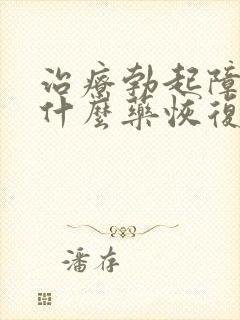 治療勃起障
什麼藥恢復
潘存